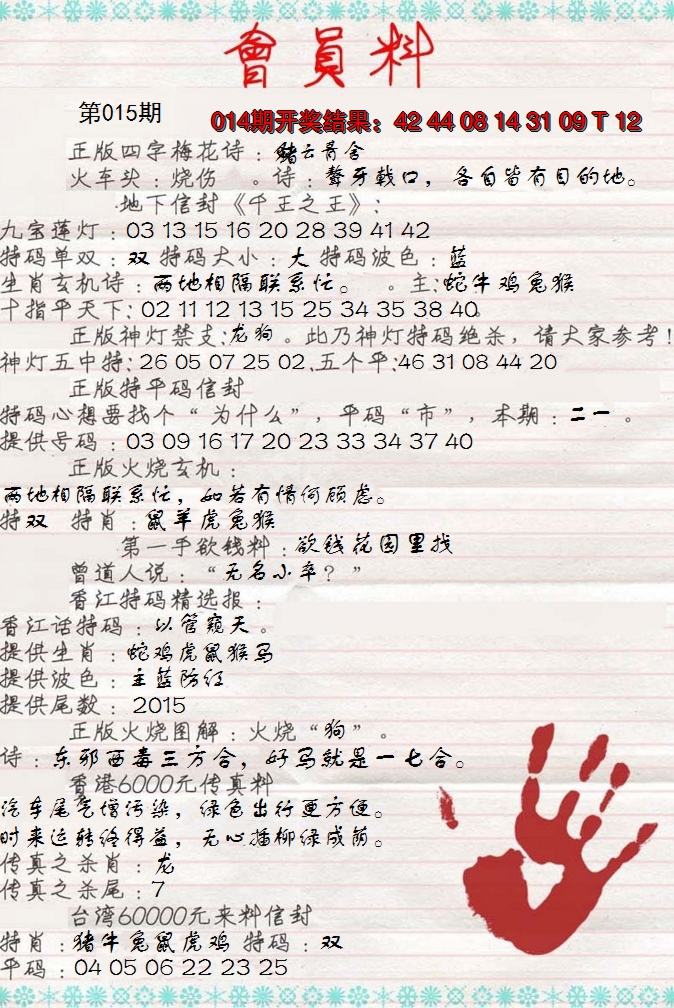 會員料
第015期
014期开奖结果：42 44 08 14 31 09 T 12
正版四字梅花诗：猪云吞舍
火车头：烧伤 。诗：聱牙戟口，各自皆有目的地。
地下信封《千王之王》：
九宝莲灯：03 13 15 16 20 28 39 41 42
特码单双：双 特码大小：大 特码波色：蓝
生肖玄机诗：两地相隔联系忙。 。主:蛇牛鸡兔猴
十指平天下: 02 11 12 13 15 25 34 35 38 40
正版神灯禁支:龙狗。此乃神灯特码绝杀，请大家参考!
神灯五中特:26 05 07 25 02.五个平:46 31 08 44 20
正版特平码信封
特码心想要找个“为什么”，平码“市”，本期：二一。
提供号码：03 09 16 17 20 23 33 34 37 40
正版火烧玄机：
两地相隔联系忙，如若有情何顾虑。
特双 特肖：鼠羊虎兔猴
第一手欲钱料：欲钱花园里找
曾道人说：“无名小卒？”
香江特码精选报：
香江话特码：以管窥天。
提供生肖：蛇鸡虎鼠猴马
提供波色：主蓝防红
提供尾数：2015
正版火烧图解：火烧“狗”。
诗：东邪西毒三方合，好马就是一七合。
香港6000元传真料
汽车尾气增污染，绿色出行更方便。
时来运转终得益，无心插柳绿成荫。
传真之杀肖：龙
传真之杀尾：7
台湾60000元来料信封
特肖:猪牛兔鼠虎鸡 特码：双
平码：04 05 06 22 23 25